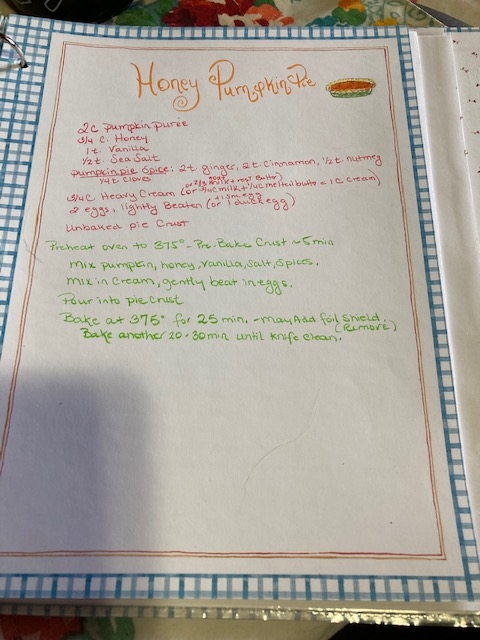 Honey Pumpkin Pie
2c pumpkin puree
3/4 C. Honey
1 t. Vanilla
1/2 t. Sea Salt
pumpkin pie spice: 2t ginger, 2t. Cinnamon, 1/2t. nutmeg
1/4t. Cloves
(or 2/3 milk + rest Butter)
3/4 C Heavy Cream (or 3/4C milk + 1/4C melted butter = 1C cream)
+1sm egg
2 eggs, lightly Beaten (or 1 duck egg)
Unbaked pie Crust
Preheat oven to 375° - Pre-Bake Crust ~5min
Mix pumpkin, honey, vanilla, salt, spices.
Mix in Cream, gently beat in eggs.
Pour into pie Crust
Bake at 375° for 25 min. - may Add foil shield.
(Remove)
Bake another 20-30min until knife clean.